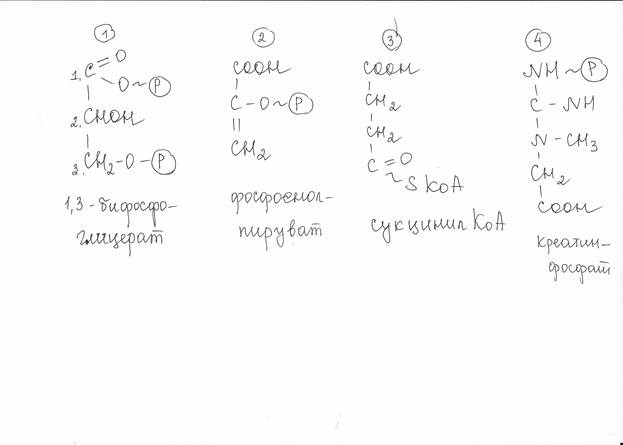 1
1. C = O
O ~ P
2. CHOH
3. CH2 - O - P
1,3 - бифосфо-
глицерат
2
COOH
C - O ~ P
CH2
фосфоенол-
пируват
3
COOH
CH2
CH2
C = O
~ S KoA
сукцинил KoA
4
NH ~ P
C - NH
N - CH3
CH2
COOH
креатин-
фосфат